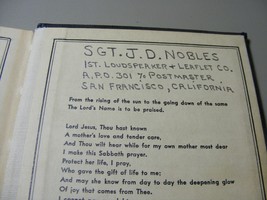 SGT. J. D. NOBLES
1ST. LOUDSPEAKER & LEAFLET CO.
A.P.O. 301 % POSTMASTER
SAN FRANCISCO, CALIFORNIA
From the rising of the sun to the going down of the same
The Lord's Name is to be praised.
Lord Jesus, Thou hast known
A mother's love and tender care,
And Thou wilt hear while for my own mother most dear
I make this Sabbath prayer.
Protect her life, I pray,
Who gave the gift of life to me;
And may she know from day to day the deepening glow
Of joy that comes from Thee.